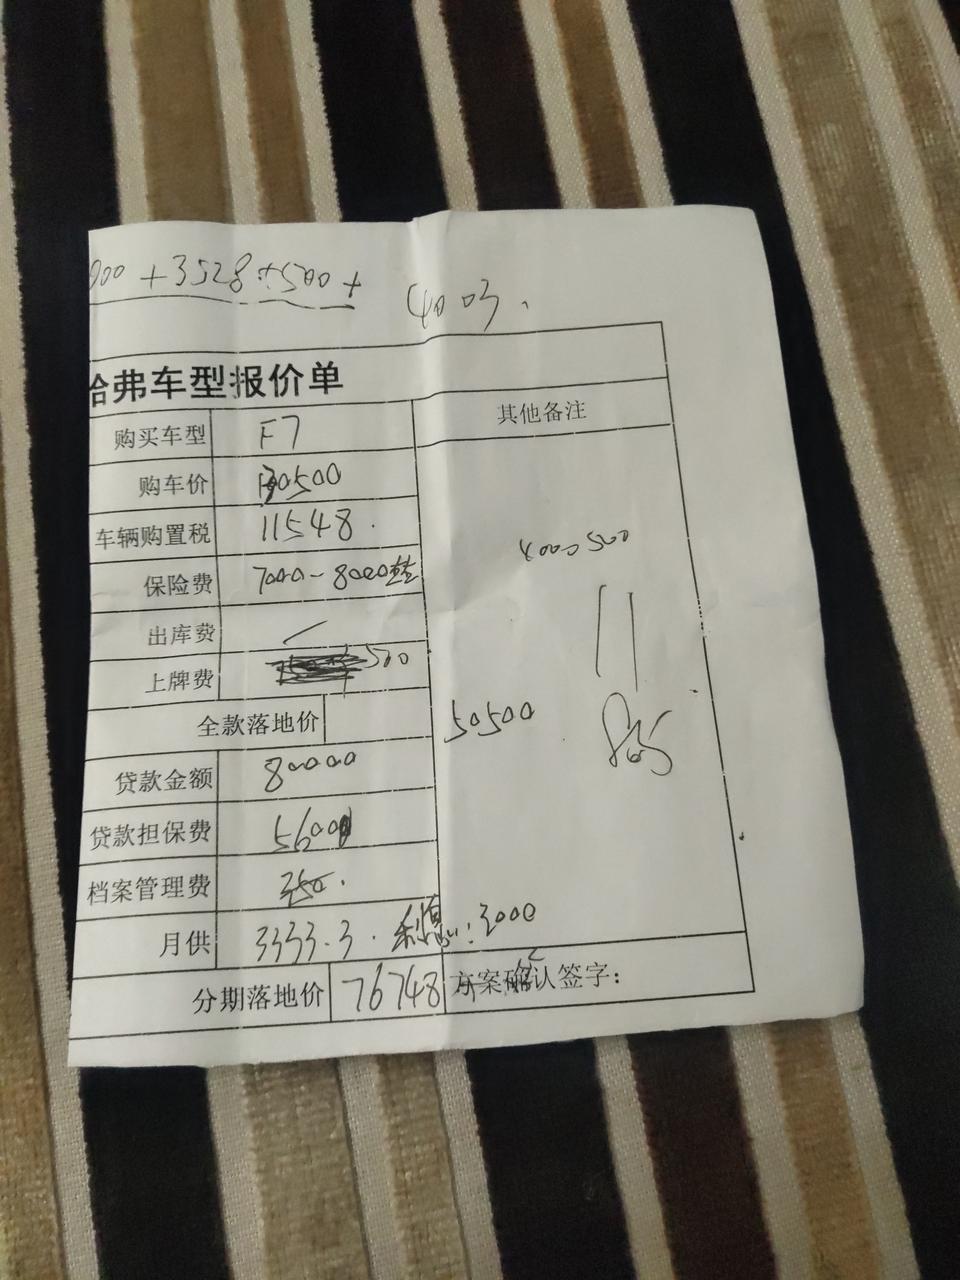 00 + 3528 + 500 +
哈弗车型报价单
其他备注
购买车型 F7
购车价 130500
车辆购置税 11548.
保险费 7000-8000
4000 500
出库费
上牌费 500
全款落地价
50500
贷款金额 80000
贷款担保费 5600
档案管理费 350.
月供 3333.3. 利息: 3000
分期落地价 76748 方案确认签字: